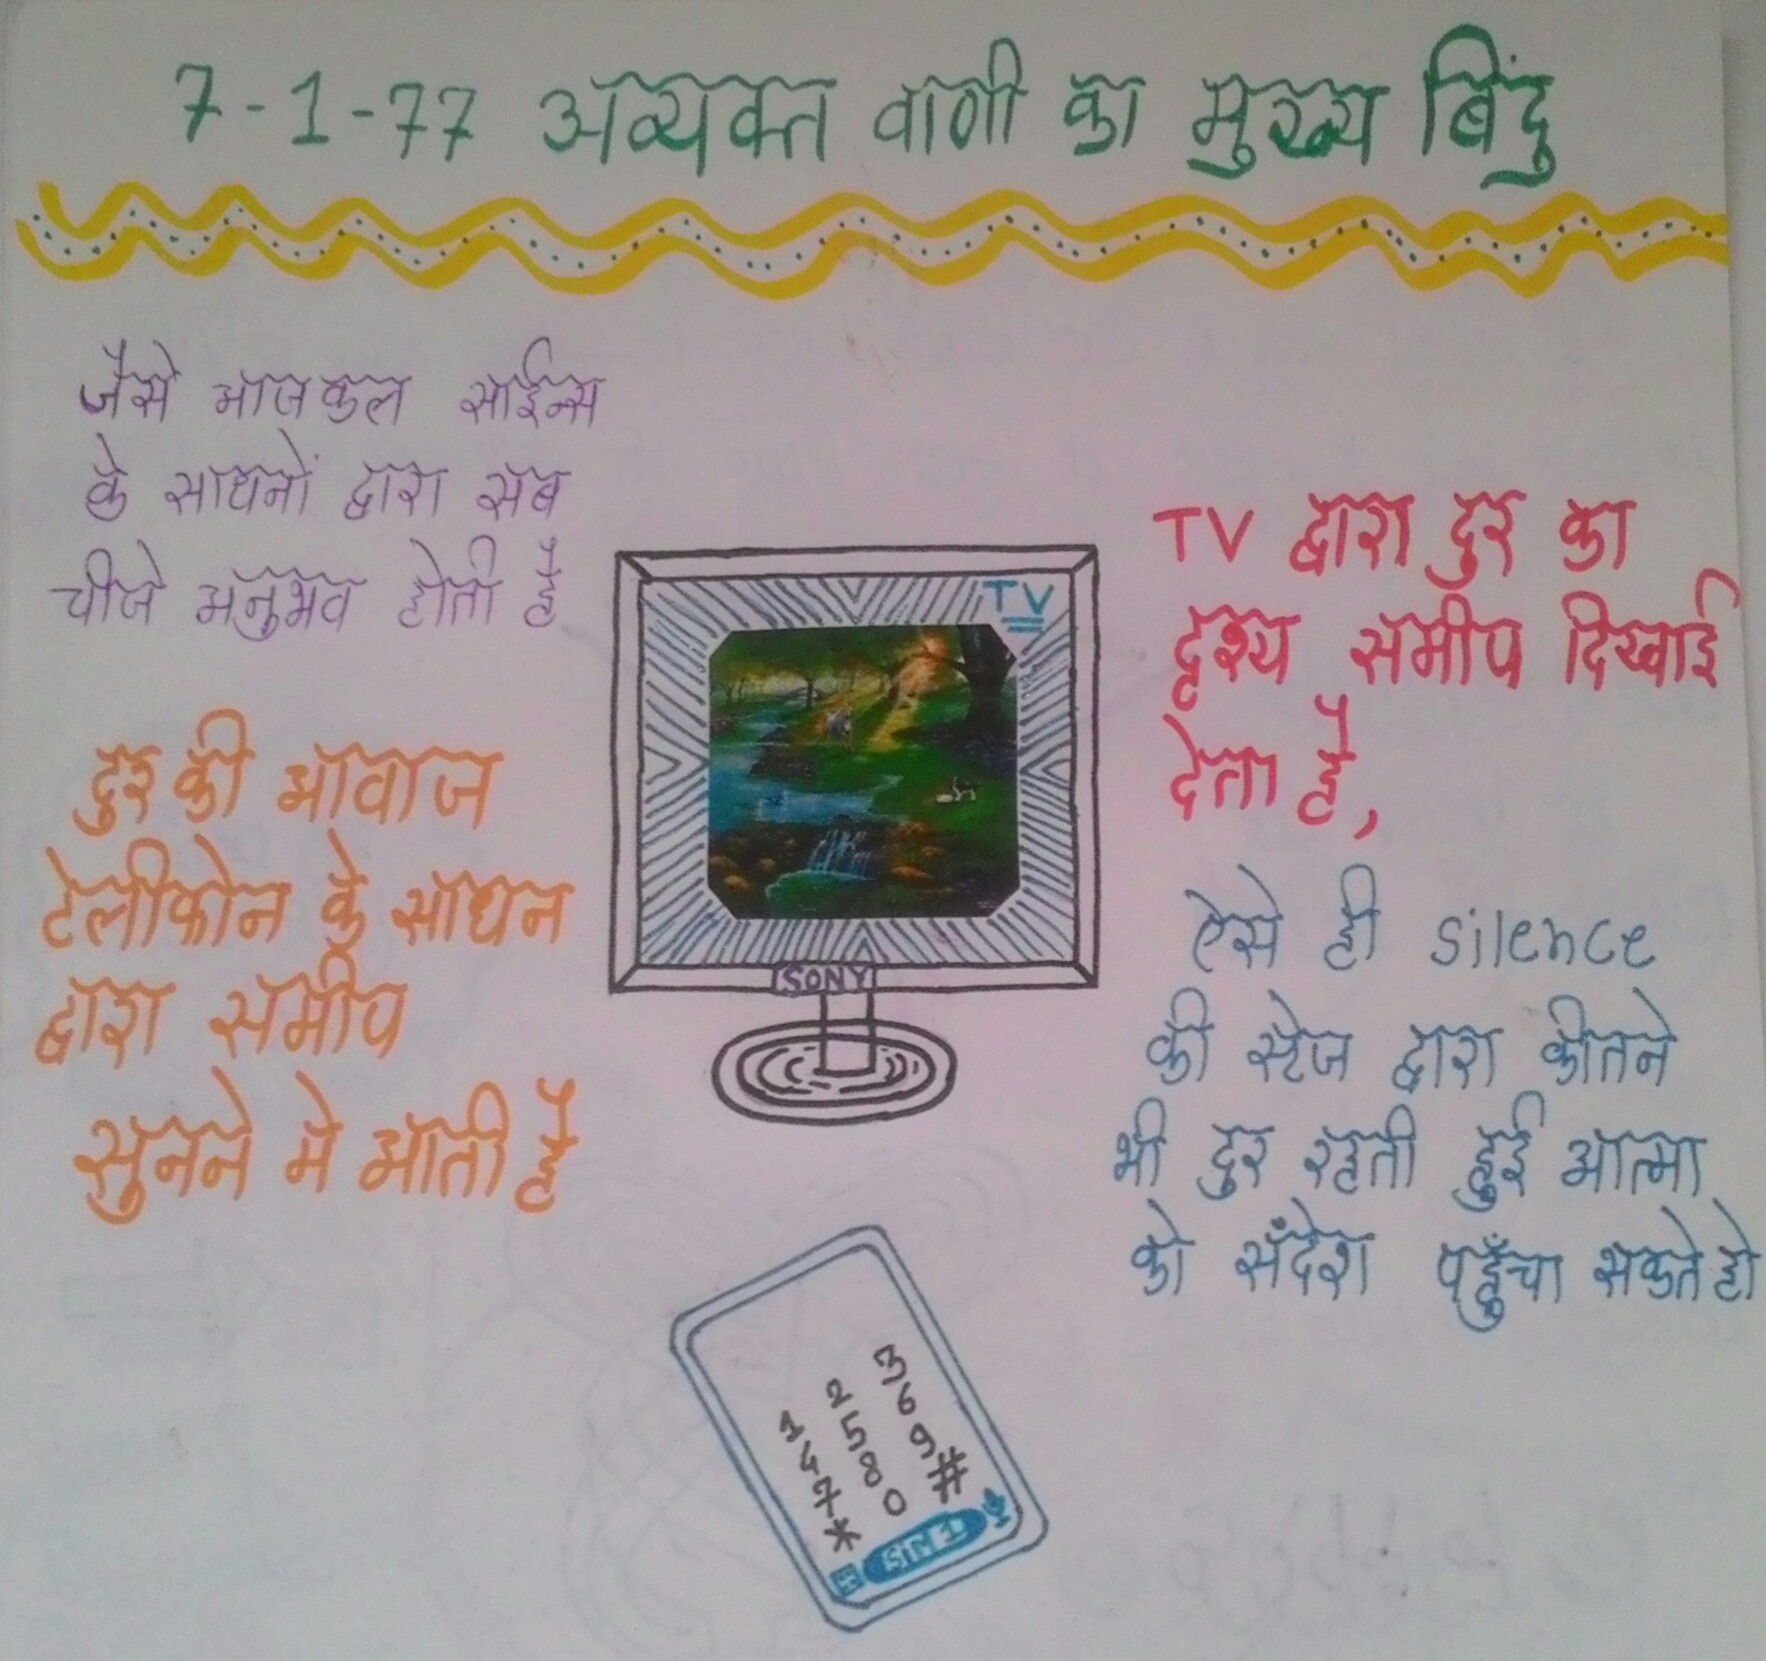 7-1-77 अव्यक्त वाणी का मुख्य बिंदु
जैसे आजकल साईन्स
के साधनों द्वारा सब
चीजे अनुभव होती है
दुर की आवाज
टेलीफोन के साधन
द्वारा समीप
सुनने मे आती है
TV
SONY
TV द्वारा दुर का
दृश्य समीप दिखाई
देता है,
ऐसे ही silence
की स्टेज द्वारा कीतने
भी दुर रहती हुई आत्मा
को सँदेश पहुँचा सकते हो
1 2 3
4 5 6
7 8 9
* 0 #
SIM 1